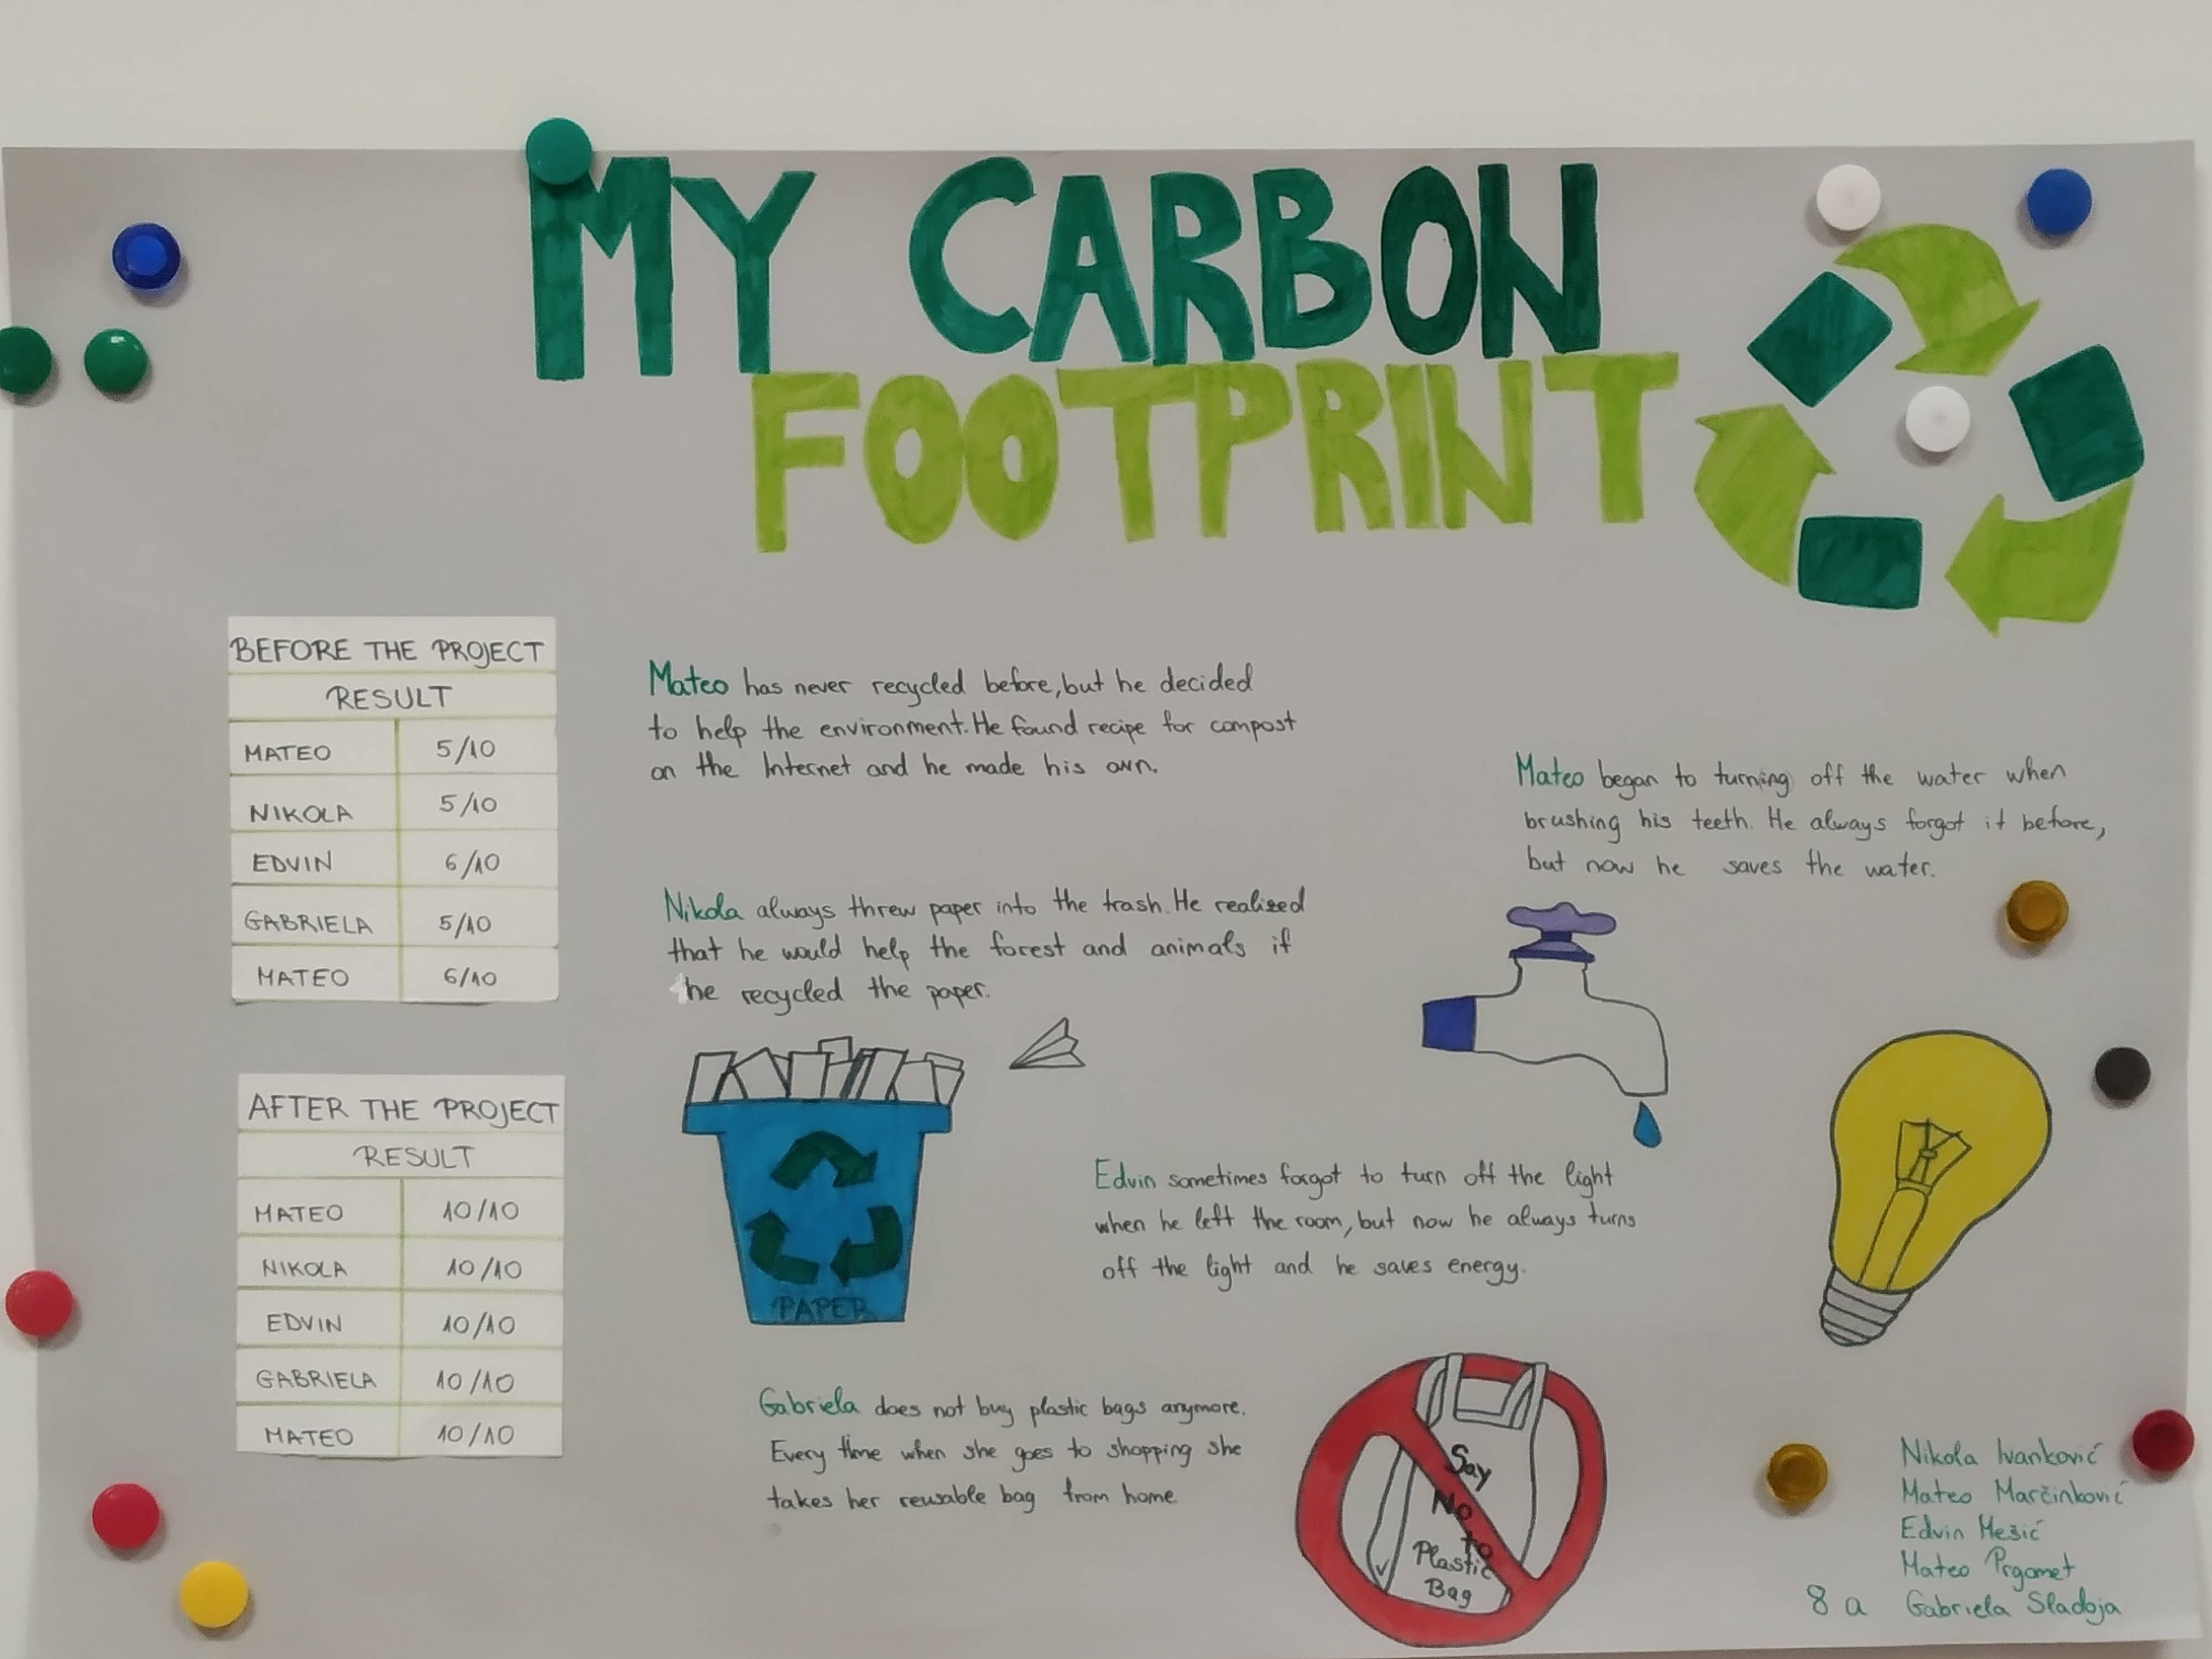 MY CARBON
FOOTPRINT
BEFORE THE PROJECT
RESULT
MATEO 5/10
NIKOLA 5/10
EDVIN 6/10
GABRIELA 5/10
MATEO 6/10
AFTER THE PROJECT
RESULT
MATEO 10/10
NIKOLA 10/10
EDVIN 10/10
GABRIELA 10/10
MATEO 10/10
Mateo has never recycled before, but he decided
to help the environment. He found recipe for compost
on the Internet and he made his own.
Mateo began to turning off the water when
brushing his teeth. He always forgot it before,
but now he saves the water.
Nikola always threw paper into the trash. He realised
that he would help the forest and animals if
he recycled the paper.
PAPER
Edvin sometimes forgot to turn off the light
when he left the room, but now he always turns
off the light and he saves energy.
Gabriela does not buy plastic bags anymore.
Every time when she goes to shopping she
takes her reusable bag from home.
Say
No
to
Plastic
Bag
Nikola Ivanković
Mateo Marčinković
Edvin Mešić
Mateo Prgomet
8 a Gabriela Sladoja